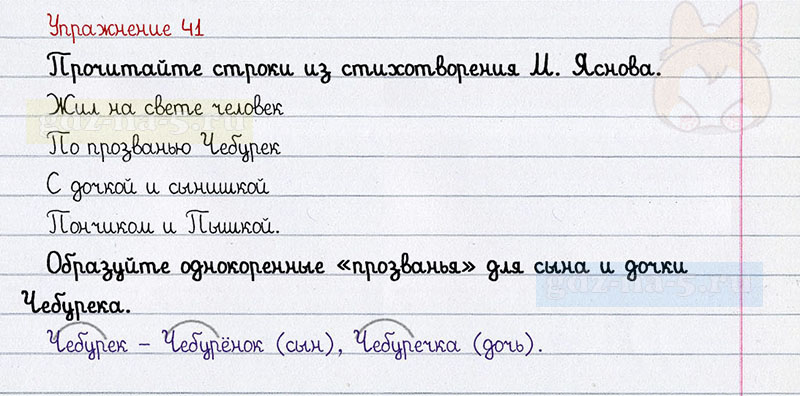 Упражнение 41
Прочитайте строки из стихотворения М. Яснова.
Жил на свете человек
По прозванью Чебурек
С дочкой и сынишкой
Пончиком и Пышкой.
Образуйте однокоренные «прозванья» для сына и дочки
Чебурека.
Чебурек – Чебурёнок (сын), Чебуречка (дочь).
gdz-na-5.ru
gdz-na-5.ru